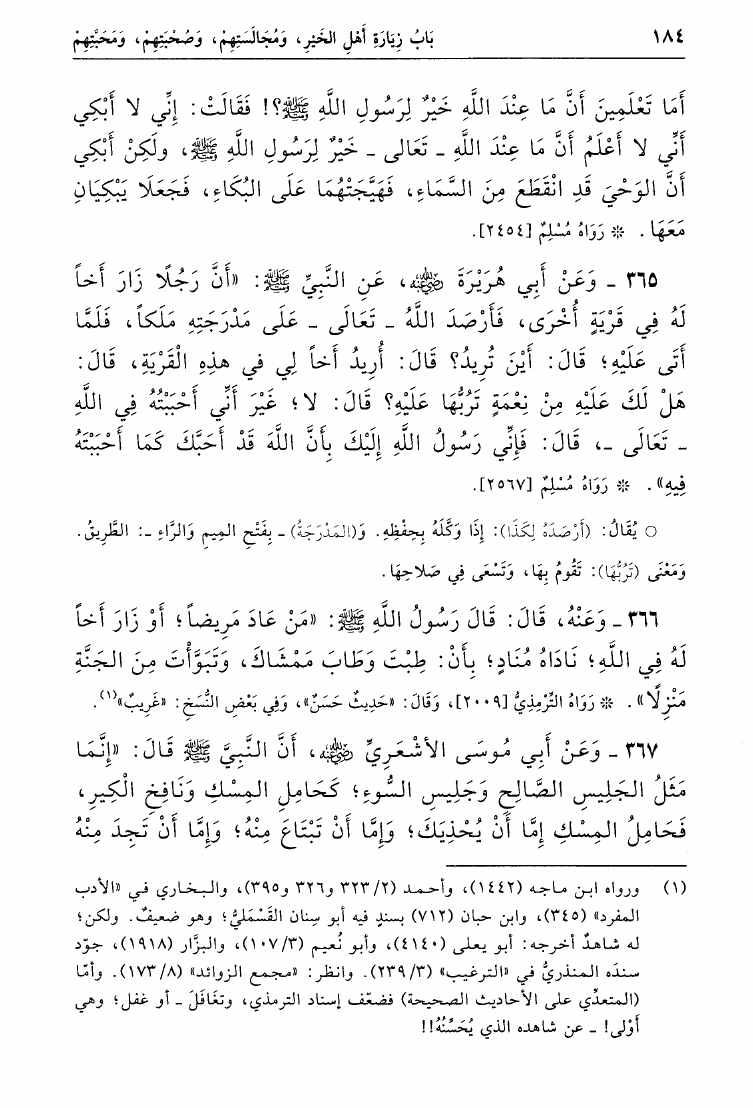 ١٨٤ بَابُ زِيَارَةِ أَهْلِ الخَيْرِ، وَمُجَالَسَتِهِمْ، وَصُحْبَتِهِمْ، وَمَحَبَّتِهِمْ
أَمَا تَعْلَمِينَ أَنَّ مَا عِنْدَ اللَّهِ خَيْرٌ لِرَسُولِ اللَّهِ ﷺ؟! فَقَالَتْ: إِنِّي لا أَبْكِي
أَنِّي لا أَعْلَمُ أَنَّ مَا عِنْدَ اللَّهِ ـ تَعَالى ـ خَيْرٌ لِرَسُولِ اللَّهِ ﷺ، ولَكِنْ أَبْكِي
أَنَّ الوَحْيَ قَدِ انْقَطَعَ مِنَ السَّمَاءِ، فَهَيَّجَتْهُمَا عَلَى البُكَاءِ، فَجَعَلَا يَبْكِيَانِ
مَعَهَا. * رَوَاهُ مُسْلِمٌ [٢٤٥٤].
٣٦٥ ـ وَعَنْ أَبِي هُرَيْرَةَ رضي الله عنه، عَنِ النَّبِيِّ ﷺ: «أَنَّ رَجُلًا زَارَ أَخاً
لَهُ فِي قَرْيَةٍ أُخْرَى، فَأَرْصَدَ اللَّهُ ـ تَعَالَى ـ عَلَى مَدْرَجَتِهِ مَلَكاً، فَلَمَّا
أَتَى عَلَيْهِ؛ قَالَ: أَيْنَ تُرِيدُ؟ قَالَ: أُرِيدُ أَخاً لِي في هذِهِ الْقَرْيَةِ، قَالَ:
هَلْ لَكَ عَلَيْهِ مِنْ نِعْمَةٍ تَرُبُّهَا عَلَيْهِ؟ قَالَ: لا؛ غَيْرَ أَنِّي أَحْبَبْتُهُ فِي اللَّهِ
ـ تَعَالَى ـ، قَالَ: فَإِنِّي رَسُولُ اللَّهِ إِلَيْكَ بِأَنَّ اللَّهَ قَدْ أَحَبَّكَ كَمَا أَحْبَبْتَهُ
فِيهِ». * رَوَاهُ مُسْلِمٌ [٢٥٦٧].
○ يُقَالُ: (أَرْصَدَهُ لِكَذَا): إِذَا وَكَّلَهُ بِحِفْظِهِ. وَ(المَدْرَجَةُ) ـ بِفَتْحِ المِيمِ وَالرَّاءِ ـ: الطَّرِيقُ.
وَمَعْنَى (تَرُبُّهَا): تَقُومُ بِهَا، وَتَسْعَى فِي صَلَاحِهَا.
٣٦٦ ـ وَعَنْهُ، قَالَ: قَالَ رَسُولُ اللَّهِ ﷺ: «مَنْ عَادَ مَرِيضاً؛ أَوْ زَارَ أَخاً
لَهُ فِي اللَّهِ؛ نَادَاهُ مُنَادٍ؛ بِأَنْ: طِبْتَ وَطَابَ مَمْشَاكَ، وَتَبَوَّأْتَ مِنَ الجَنَّةِ
مَنْزِلًا». * رَوَاهُ التِّرْمِذِيُّ [٢٠٠٩]، وَقَالَ: «حَدِيثٌ حَسَنٌ»، وَفِي بَعْضِ النُّسَخِ: «غَرِيبٌ»(١).
٣٦٧ ـ وَعَنْ أَبِي مُوسَى الأَشْعَرِيِّ رضي الله عنه، أَنَّ النَّبِيَّ ﷺ قَالَ: «إِنَّمَا
مَثَلُ الجَلِيسِ الصَّالِحِ وَجَلِيسِ السُّوءِ؛ كَحَامِلِ المِسْكِ وَنَافِخِ الْكِيرِ،
فَحَامِلُ المِسْكِ إِمَّا أَنْ يُحْذِيَكَ؛ وَإِمَّا أَنْ تَبْتَاعَ مِنْهُ؛ وَإِمَّا أَنْ تَجِدَ مِنْهُ
(١) ورواه ابن ماجه (١٤٤٢)، وأحمد (٢/ ٣٢٣ و٣٢٦ و٣٩٥)، والبخاري في «الأدب
المفرد» (٣٤٥)، وابن حبان (٧١٢) بسندٍ فيه أبو سِنان القَسْمَليُّ؛ وهو ضعيفٌ. ولكن؛
له شاهدٌ أخرجه: أبو يعلى (٤١٤٠)، وأبو نُعيم (٣/ ١٠٧)، والبزَّار (١٩١٨)، جوّد
سندَه المنذريُّ في «الترغيب» (٣/ ٢٣٩). وانظر: «مجمع الزوائد» (٨/ ١٧٣). وأمّا
(المتعدِّي على الأحاديث الصحيحة) فضعّف إسناد الترمذي، وتغَافَلَ ـ أو غفل؛ وهي
أوْلى! ـ عن شاهده الذي يُحَسِّنُهُ!!